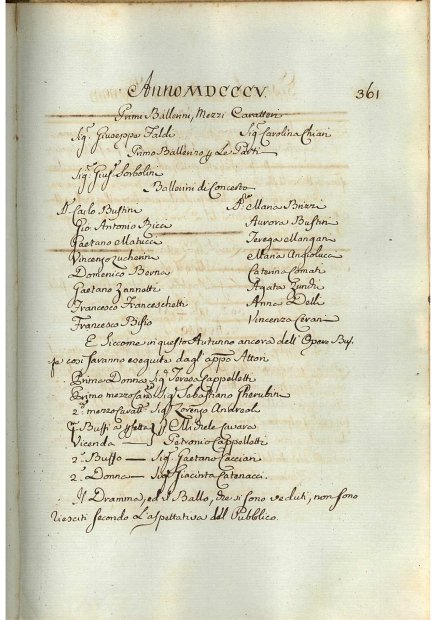 Anno MDCCCV. 361
Primi Ballerini, Mezzi Caratteri
Sig.r Giuseppe Faldi Sig.ra Carolina Chiari
Primo Ballerino p. Le Parti
Sig.r Gius.e Sorbolini
Ballerini di Concerto
Carlo Bustini Maria Brizzi
Gio Antonio Ricci Aurora Bustini
Gaetano Matucci Teresa Mangani
Vincenzo Zucherini Maria Angiolucci
Domenico Berna Caterina
Gaetano Zannotti Agata
Francesco Franceschetti Anna
Francesco Bisio Vincenza Cerani
E siccome in questo Autunno ancora dell' Opere Buf-
fe così saranno eseguite dagli app.o Attori
Prima Donna Sig.ra Teresa Cappelletti
Primo mezzo Sig.r Sebastiano Cherubini
2.o mezzo Sig.r Lorenzo Andreoli
Buffi a Michele Cavara
Vicenda Petronio Cappelletti
2.o Buffo — Sig.r Gaetano Cacciari
2.a Donna — Sig.ra Giacinta Catenacci.
Il Dramma, ed il Ballo, che si sono veduti, non sono
riesciti secondo l'aspettativa del Pubblico.